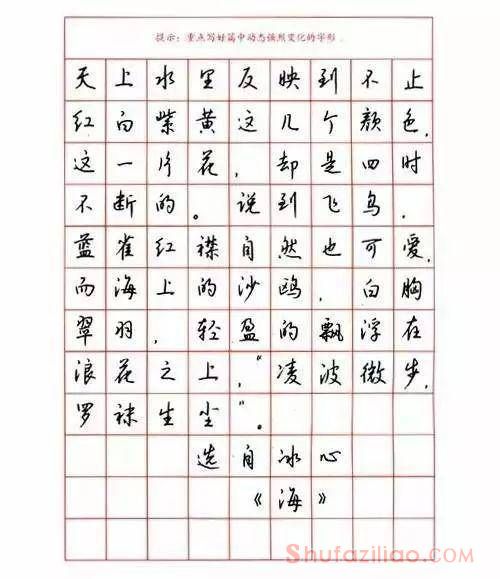 提示：重点写好篇中动态强烈变化的字形。
天上水里反映到不止
红白紫黄这几个颜色，
这一片花，却是四时
不断的。说到飞鸟，
蓝雀红襟自然也可爱，
而海上的沙鸥，白胸
翠羽，轻盈的飘浮在
浪花之上，“凌波微步，
罗袜生尘”。
选自冰心
《海》
Shufaziliao.com